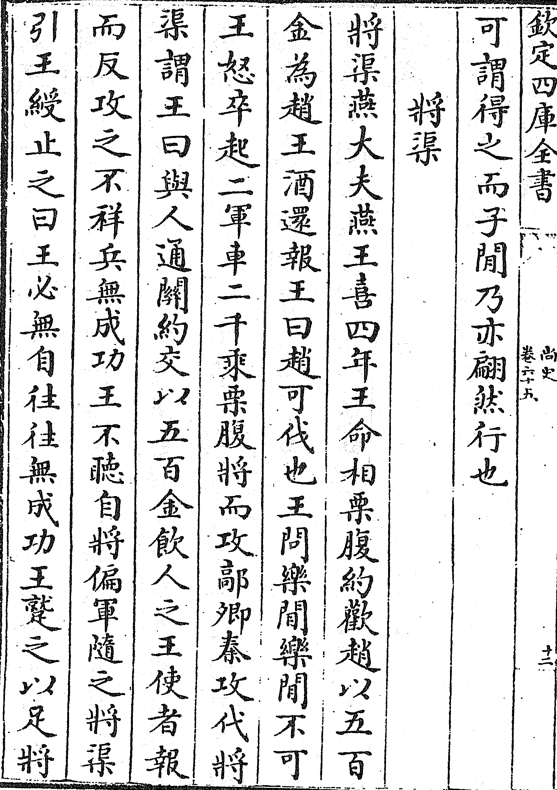 欽定四庫全書
尚史
卷六十五
十三
可謂得之而子閒乃亦翩然行也
將渠
將渠燕大夫燕王喜四年王命相栗腹約歡趙以五百
金為趙王酒還報王曰趙可伐也王問樂閒樂閒不可
王怒卒起二軍車二千乘栗腹將而攻鄗卿秦攻代將
渠謂王曰與人通關約交以五百金飲人之王使者報
而反攻之不祥兵無成功王不聽自將偏軍隨之將渠
引王綬止之曰王必無自往往無成功王蹵之以足將